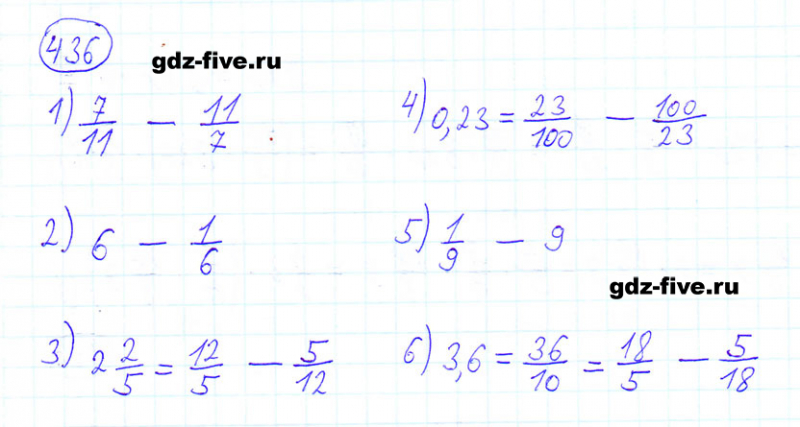 436
gdz-five.ru
1) 7/11 — 11/7
4) 0,23 = 23/100 — 100/23
2) 6 — 1/6
5) 1/9 — 9
gdz-five.ru
3) 2 2/5 = 12/5 — 5/12
6) 3,6 = 36/10 = 18/5 — 5/18